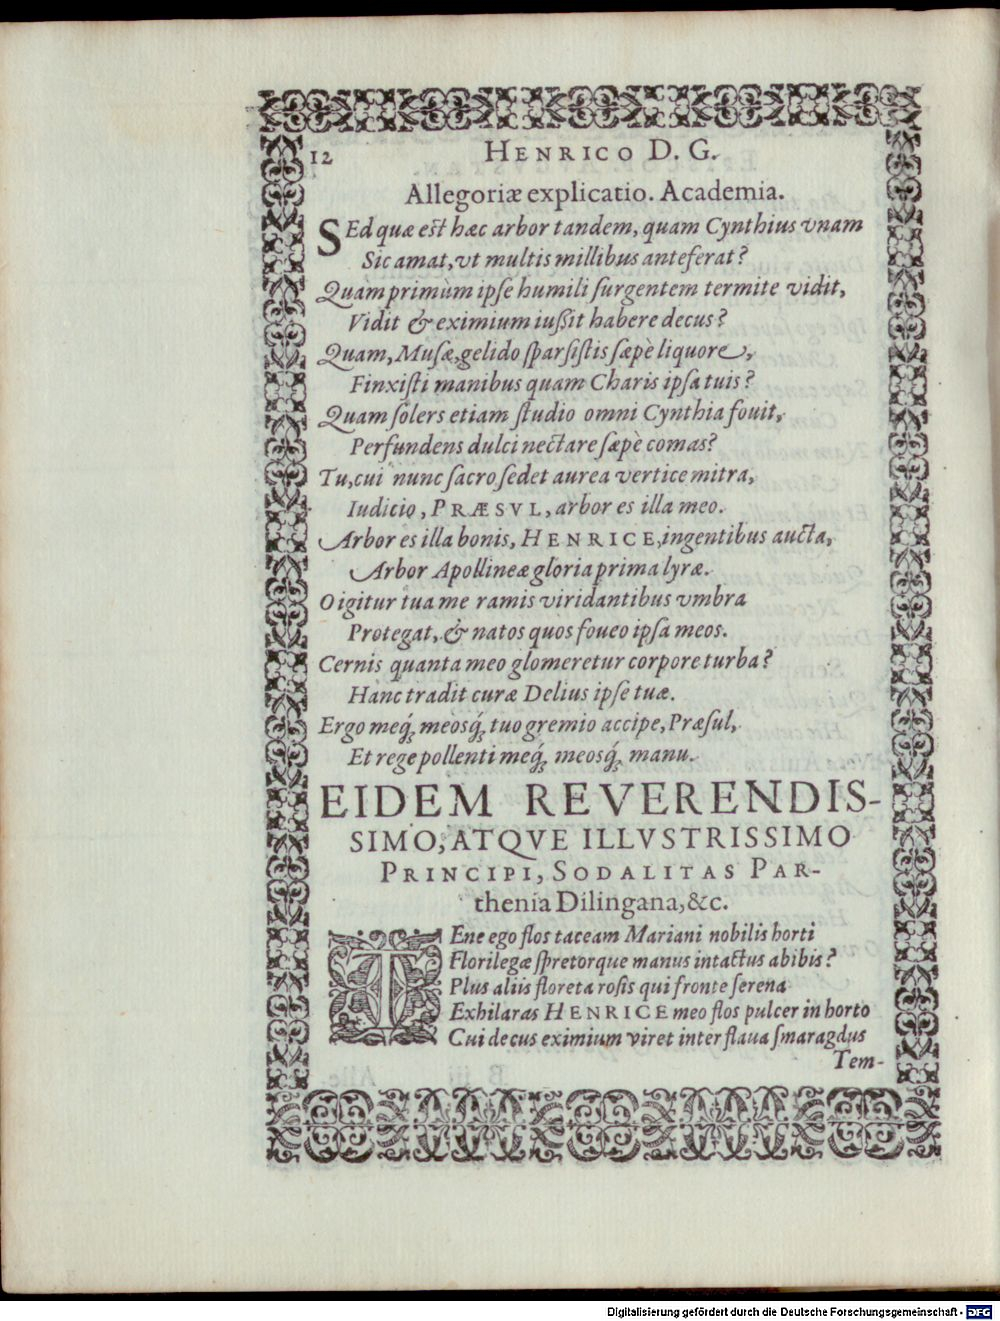 12
HENRICO D. G.
Allegoriæ explicatio. Academia.
SEd quæ est hæc arbor tandem, quam Cynthius vnam
Sic amat, vt multis millibus anteferat?
Quam primùm ipse humili surgentem termite vidit,
Vidit & eximium iußit habere decus?
Quam, Musæ, gelido sparsistis sæpè liquore,
Finxisti manibus quam Charis ipsa tuis?
Quam solers etiam studio omni Cynthia fouit,
Perfundens dulci nectare sæpè comas?
Tu, cui nunc sacro sedet aurea vertice mitra,
Iudicio, PRÆSVL, arbor es illa meo.
Arbor es illa bonis, HENRICE, ingentibus aucta,
Arbor Apollineæ gloria prima lyræ.
O igitur tua me ramis viridantibus vmbra
Protegat, & natos quos foueo ipsa meos.
Cernis quanta meo glomeretur corpore turba?
Hanc tradit curæ Delius ipse tuæ.
Ergo meq́; meosq́; tuo gremio accipe, Præsul,
Et rege pollenti meq́; meosq́; manu.
EIDEM REVERENDIS-
SIMO, ATQVE ILLVSTRISSIMO
PRINCIPI, SODALITAS PAR-
thenia Dilingana, &c.
TEne ego flos taceam Mariani nobilis horti
Florilegæ spretorque manus intactus abibis?
Plus aliis floreta rosis qui fronte serena
Exhilaras HENRICE meo flos pulcer in horto
Cui decus eximium viret inter flaua smaragdus
Tem-
Digitalisierung gefördert durch die Deutsche Forschungsgemeinschaft - DFG